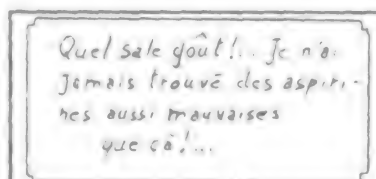 Quel sale goût!.. Je n'ai
jamais trouvé des aspiri-
nes aussi mauvaises
que çà!...